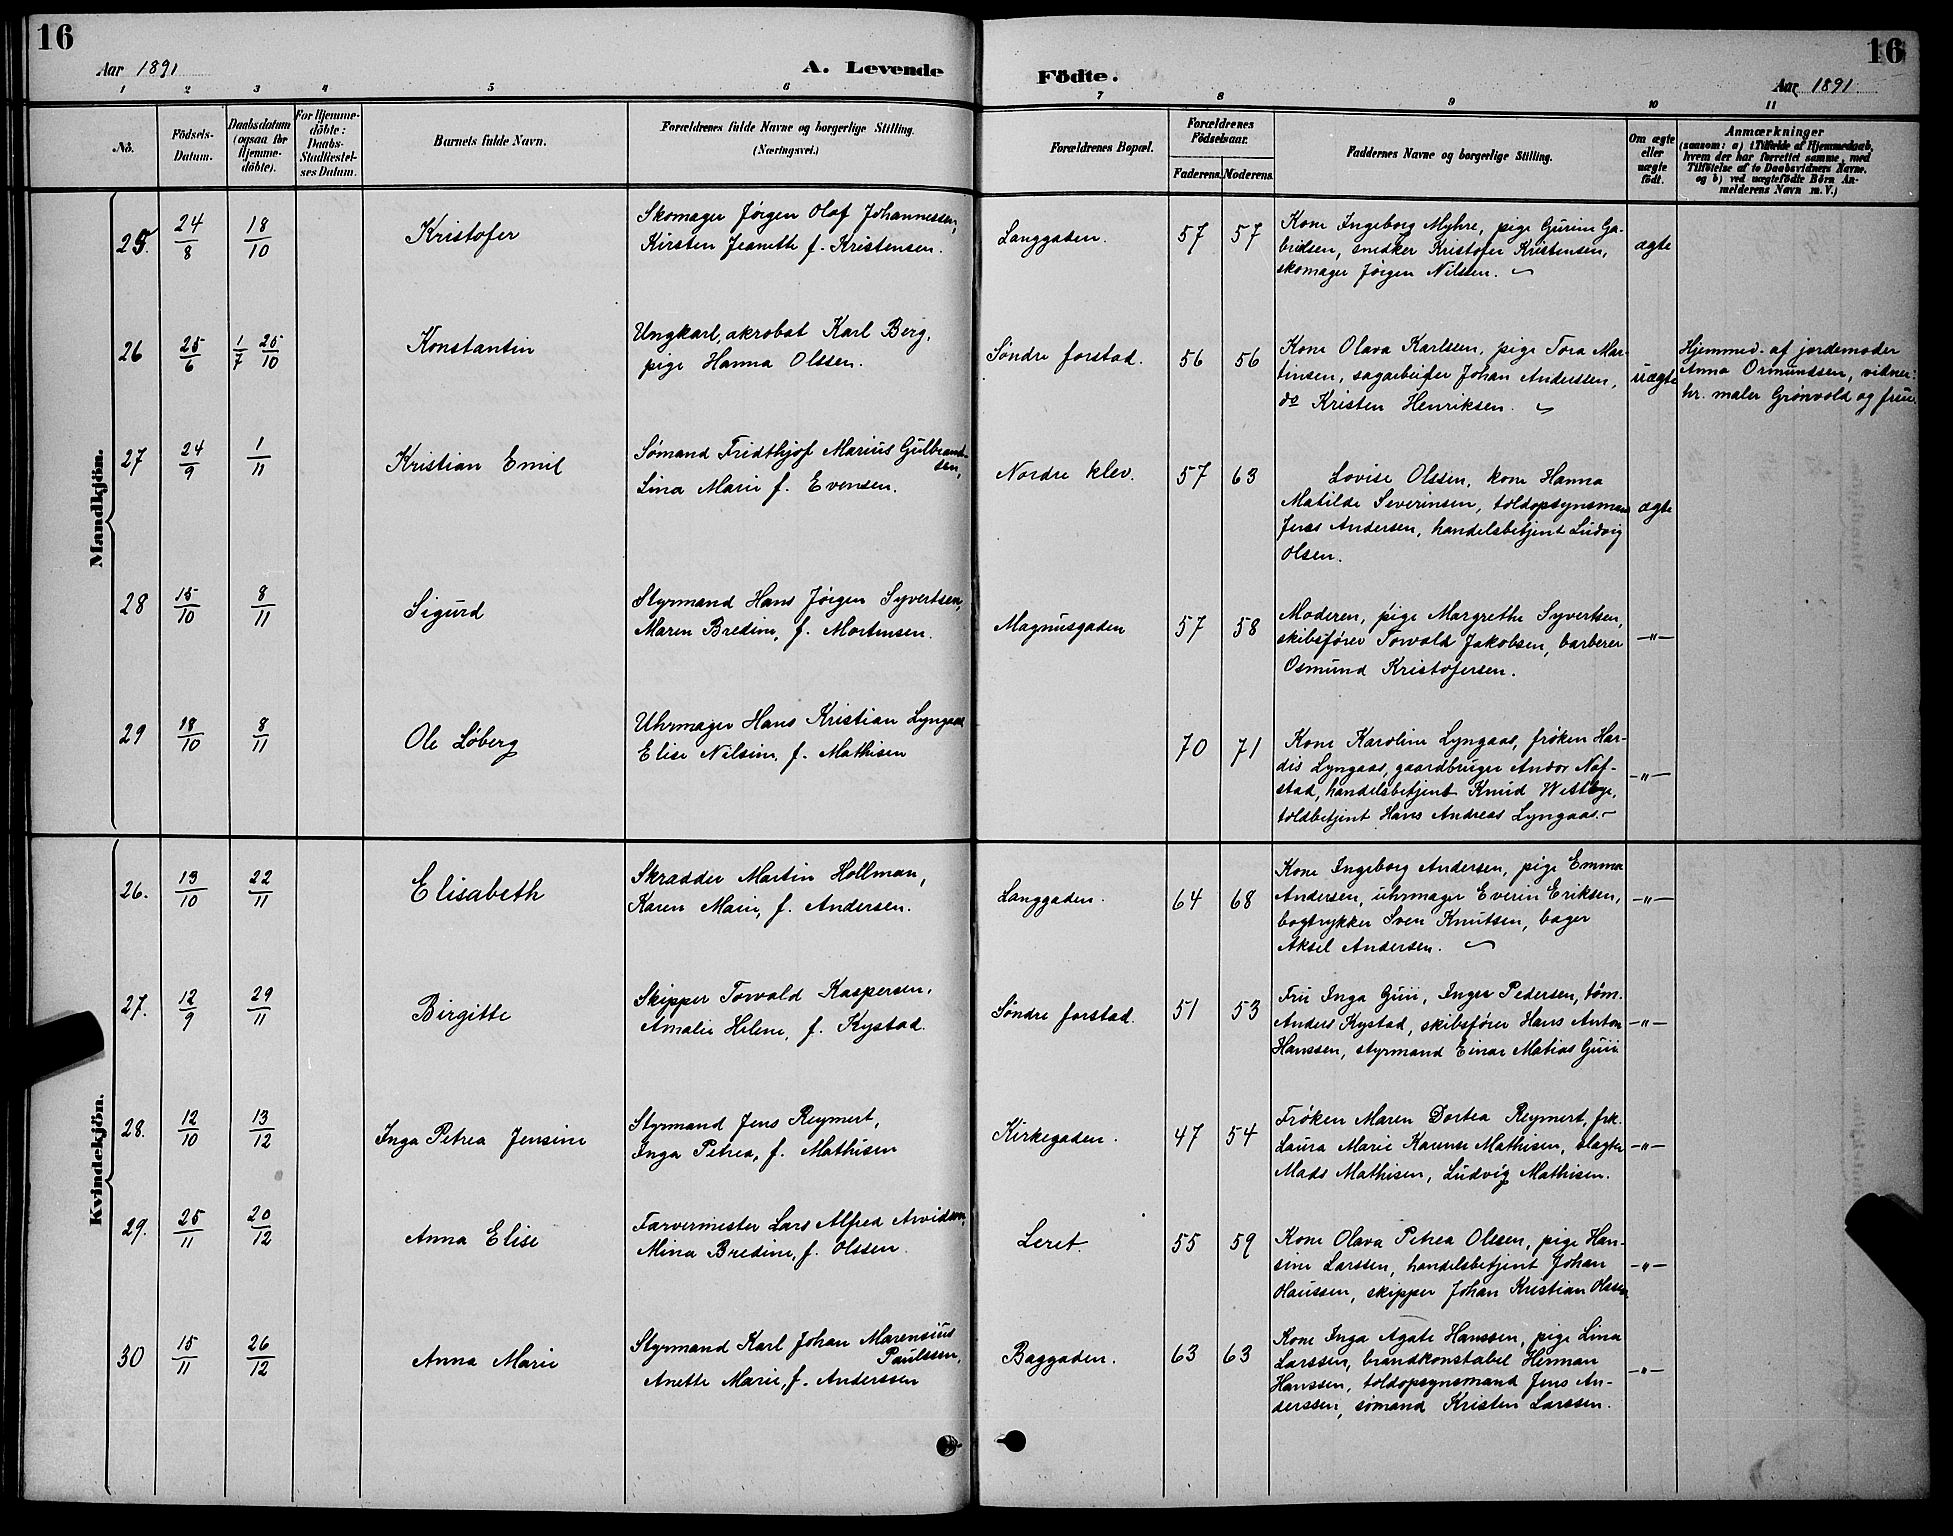 16
16
Aar 1891
A. Levende
Födte.
Aar 1891
1 2 3 4 5 6 7 8 9 10 11
No.
Födsels-
Datum.
Daabsdatum
(ogsaa for
Hjemme-
döbte).
For Hjemme-
döbte:
Daabs-
Stadfæstel-
ses Datum.
Barnets fulde Navn.
Forældrenes fulde Navne og borgerlige Stilling.
(Næringsvei.)
Forældrenes Bopæl.
Forældrenes
Födselsaar.
Faderens. Moderens.
Faddernes Navne og borgerlige Stilling.
Om ægte
eller
uægte
födt.
Anmærkninger
(saasom: a) i Tilfælde af Hjemmedaab,
hvem der har forrettet samme, med
Tilföielse af to Daabsvidners Navne,
og b) ved uægtefödte Börn An-
melderens Navn m. V.)
Mandkjön.
25. 24/8 18/10 Kristofer
Skomager Jørgen Olaf Johannessen,
Kirsten Jeanette f. Kristensen.
Langgaden. 57 57
Kone Ingeborg Myhre, pige Gurine Ga-
brielsen, snedker Kristofer Kristensen,
skomager Jørgen Nilssen.
ægte
26 25/6 1/7 25/10 Konstantin
Ungkarl, akrobat Karl Berg,
pige Hanna Olssen.
Søndre forstad. 56 56
Kone Olava Karlsen, pige Tora Mar-
tinsen, sagarbeider Johan Anderssen,
do Kristen Henriksen.
uægte
Hjemmed. af jordemoder
Anna Ormundssen, vidner:
hr. maler Grønvold og frue.
27 24/9 1/11 Kristian Emil
Sømand Fridthjof Marius Gulbrand-
sen,
Lina Marie f. Evensen.
Nordre klev. 57 63
Lovise Olssen, kone Hanna
Matilde Severinsen, toldopsynsmand
Jens Andersen, handelsbetjent Ludvig
Olsen.
ægte
28 15/10 8/11 Sigurd
Styrmand Hans Jørgen Syvertsen,
Maren Bredine, f. Mortensen.
Magnusgaden 57 58
Moderen, pige Margrethe Syvertsen,
skibsfører Torvald Jakobsen, barberer
Osmund Kristofersen.
-"-
29 18/10 8/11 Ole Løberg
Uhrmager Hans Kristian Lyngaas
Elise Nilsine, f. Mathisen
70 71
Kone Karoline Lyngaas, frøken Har-
dis Lyngaas, gaardbruger Andor Naf-
stad, handelsbetjent Knud Westbye,
toldbetjent Hans Andreas Lyngaas.
-"-
Kvindekjön.
26. 13/10 22/11 Elisabeth
Skrædder Martin Hollman,
Karen Marie, f. Andersen.
Langgaden. 64 68
Kone Ingeborg Andersen, pige Emma
Andersen, uhrmager Everin Eriksen,
bogtrykker Sven Knutsen, bager
Aksel Andersen.
-"-
27. 12/9 29/11 Birgitte
Skipper Torvald Kaspersen,
Amalie Helene, f. Kystad.
Søndre forstad. 51 53
Fru Inga Guii, Inger Pedersen, tøm.
Anders Kystad, skibsfører Hans Anton
Hanssen, styrmand Einar Matias Guii.
-"-
28. 12/10 13/12 Inga Petrea Jensine
Styrmand Jens Reymert,
Inga Petrea, f. Mathisen
Kirkegaden. 47 54
Frøken Maren Dortea Reymert, frk.
Laura Marie Karense Mathisen, slagter
Mads Mathisen, Ludvig Mathisen.
-"-
29. 25/11 20/12 Anna Elise
Farvermester Lars Alfred Arvidson,
Mina Bredine, f. Olssen.
Leret. 55 59
Kone Olava Petrea Olssen, pige Han-
sine Larssen, handelsbetjent Johan
Olaussen, skipper Johan Kristian Olssen
-"-
30 15/11 26/12 Anna Marie
Styrmand Karl Johan Marensius
Paulssen,
Anette Marie, f. Anderssen
Baggaden. 63 63
Kone Inga Agate Hanssen, pige Lina
Larssen, brandkonstabel Herman
Hanssen, toldopsynsmand Jens An-
derssen, sømand Kristen Larssen.
-"-